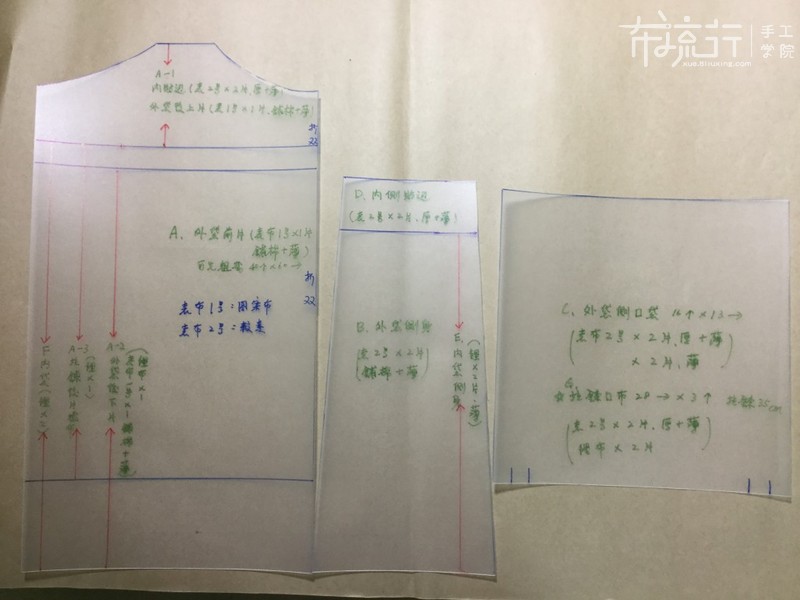 布流行
手工
学院
xue.buliuxing.com
A-1
内贴边(表2号×2片,厚+薄)
外袋后上片(表1号×1片,铺棉+薄)
折
22
A、外袋前片(表布1号×1片
铺棉+薄)
折
22
表布1号:图案布
表布2号:
F、内袋(裡×2)
A-3
(裡×1)
A-2
外袋後下片
(表布1号×1 铺棉+薄)
(裡布×1
D、内侧贴边
(表2号×2片,厚+薄)
B、外袋侧身
(表2号×2片
铺棉+薄)
E、内袋侧身
(裡×2片,薄)
C、外袋侧口袋 16↑×13→
(表布2号×2片,厚+薄)
×2片,薄
G、
拉链口布 28→×3↑ 拉链25cm
(表2号×2片,厚+薄)
裡布×2片